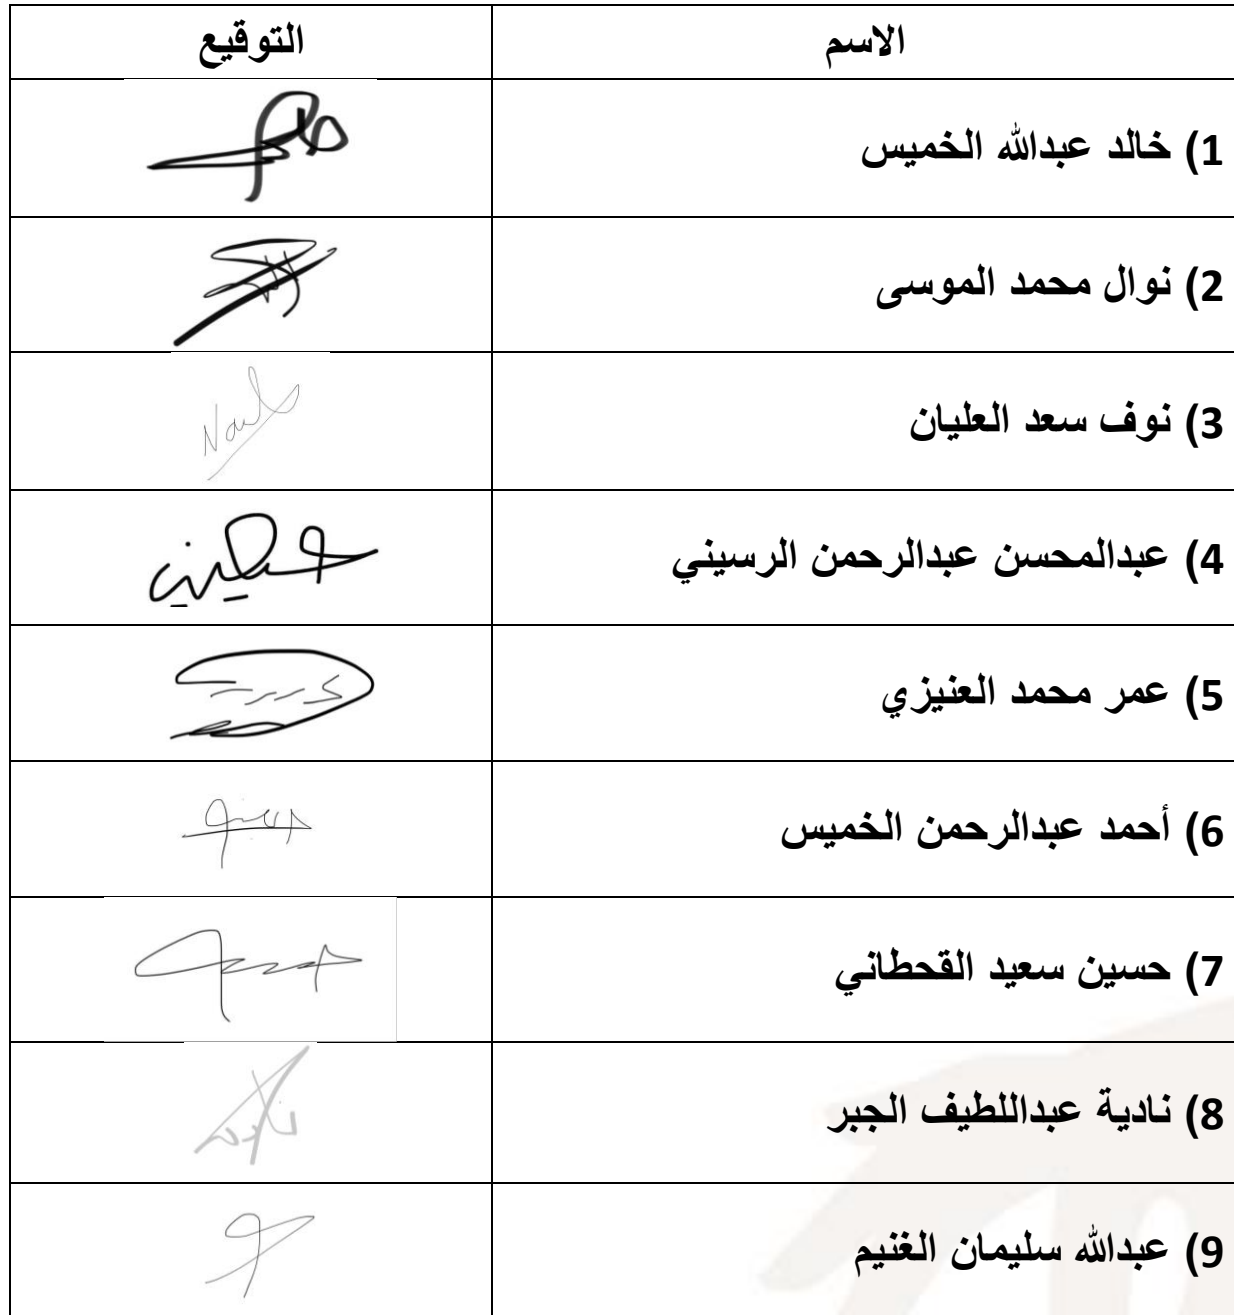 الاسم التوقيع
1) خالد عبدالله الخميس
2) نوال محمد الموسى
3) نوف سعد العليان
4) عبدالمحسن عبدالرحمن الرسيني
5) عمر محمد العنيزي
6) أحمد عبدالرحمن الخميس
7) حسين سعيد القحطاني
8) نادية عبداللطيف الجبر
9) عبدالله سليمان الغنيم